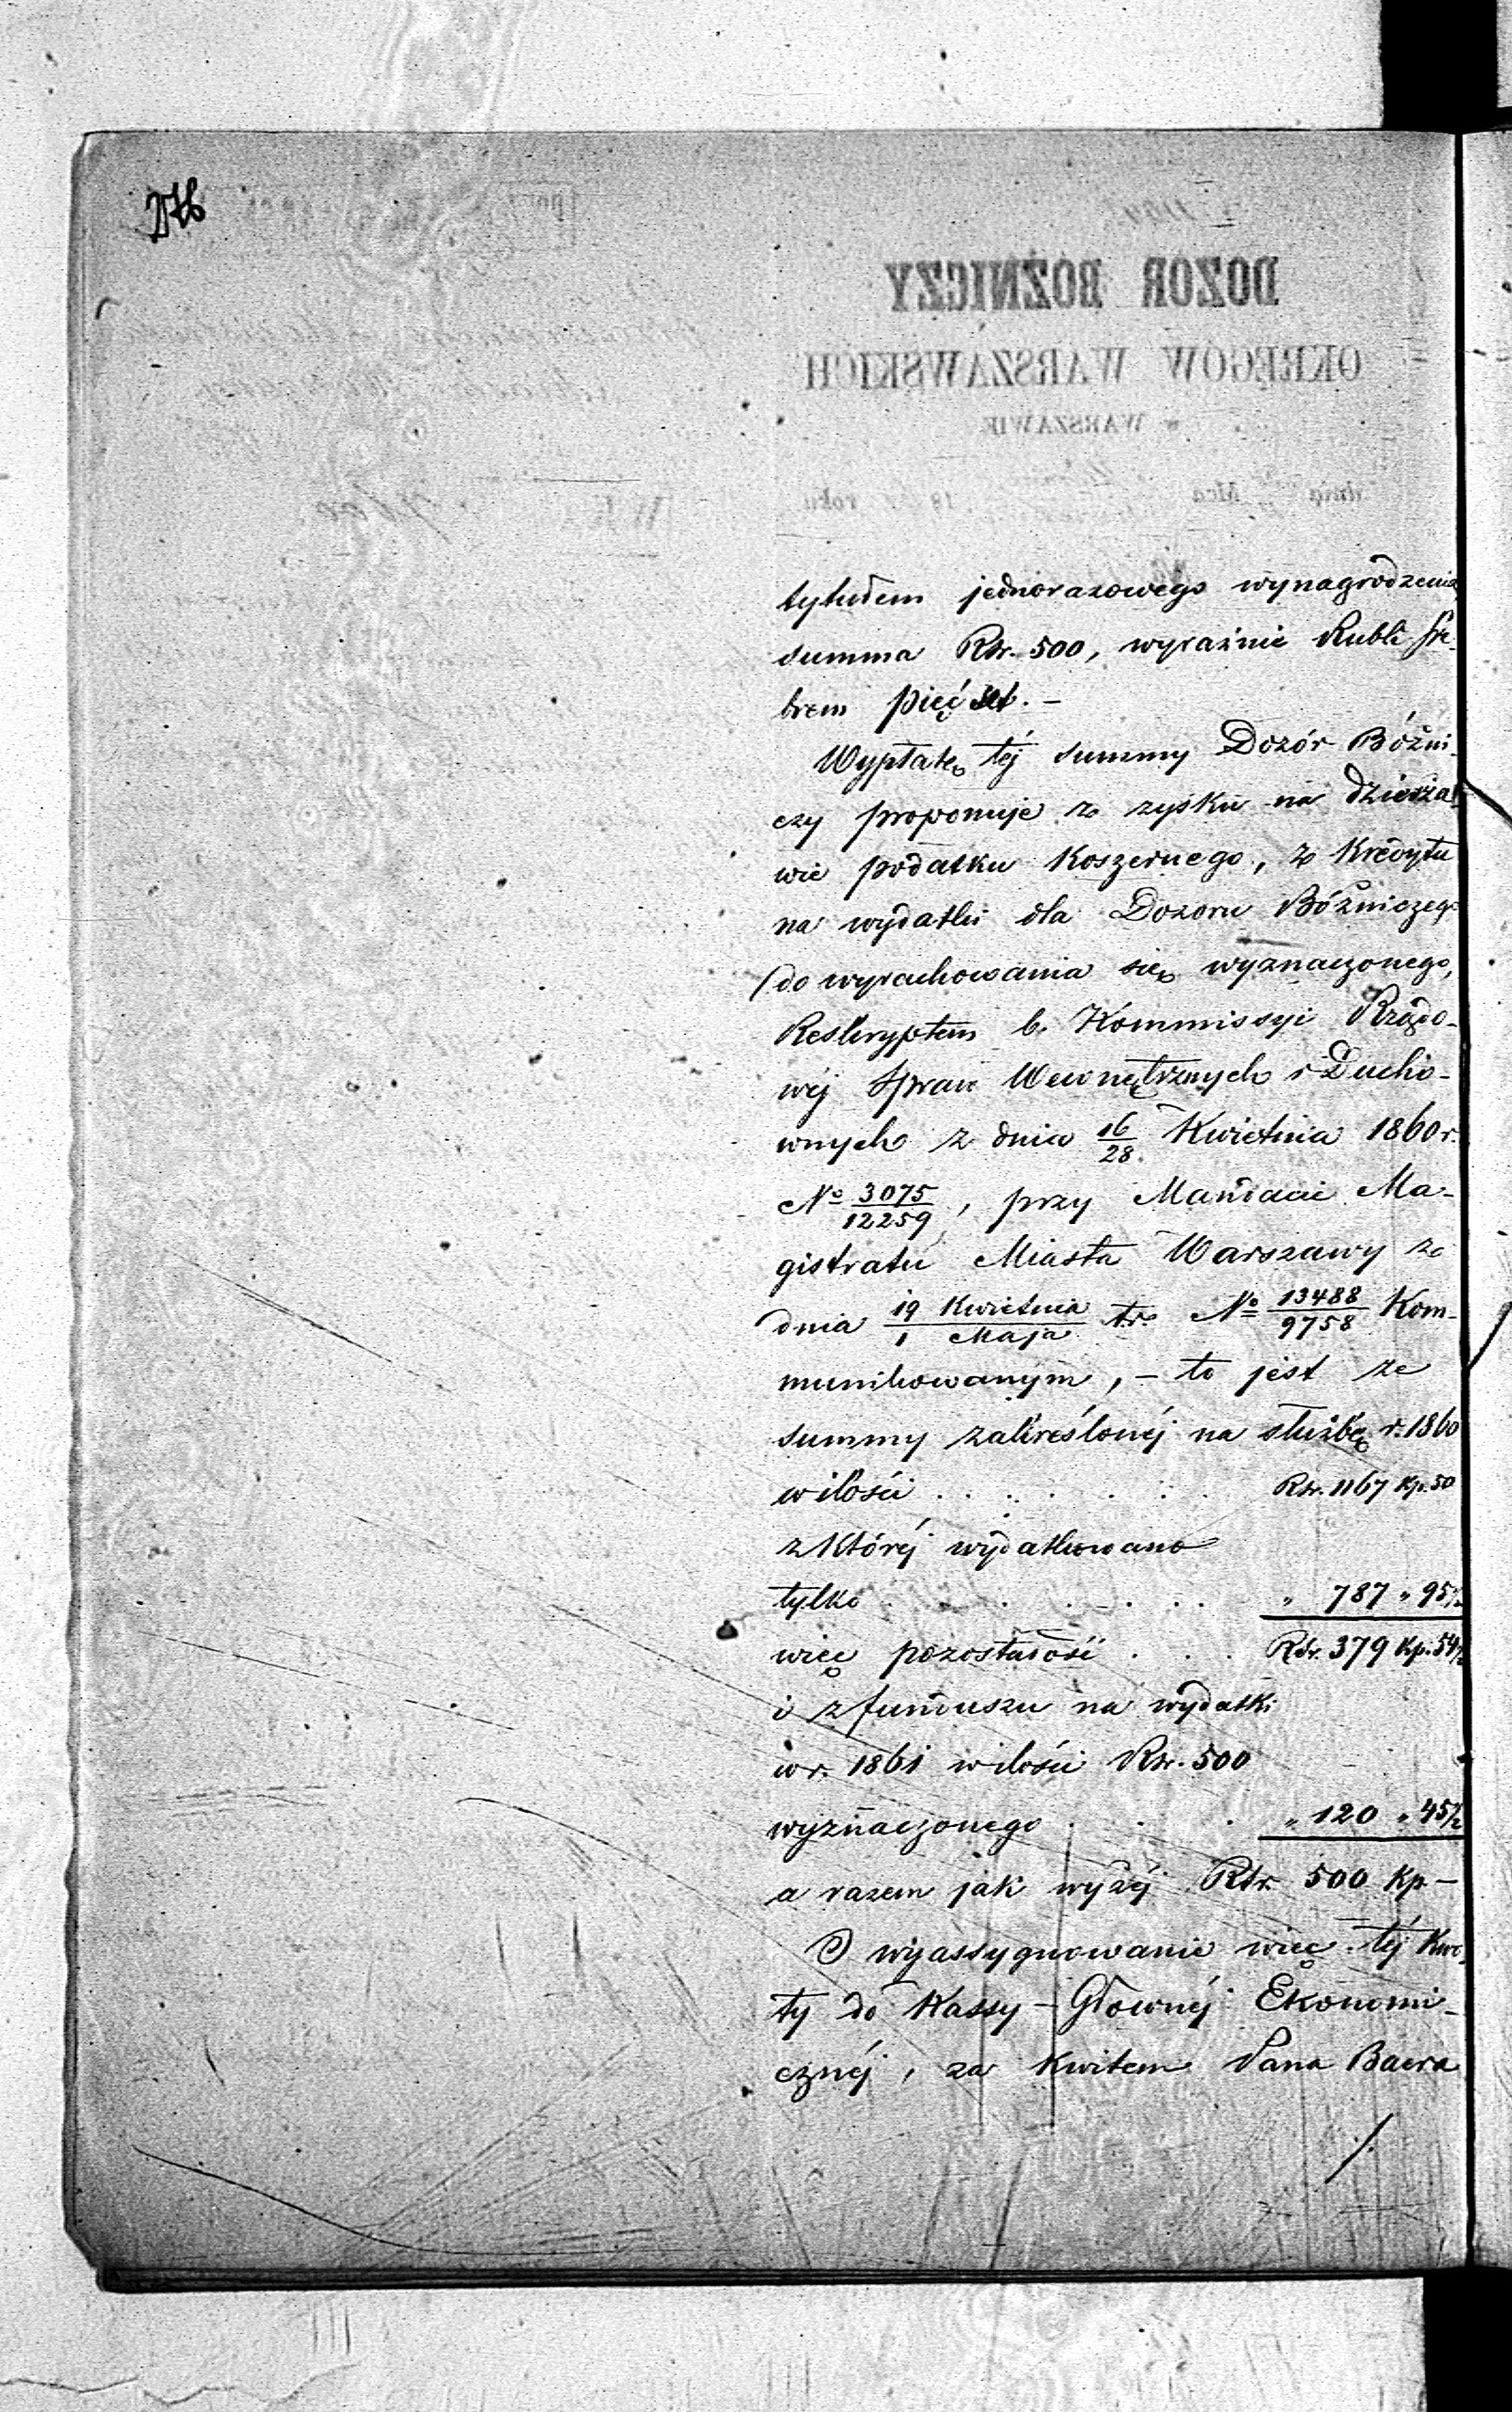 276
tytułem jednorazowego wynagrodzenia
summa Rsr. 500, wyraźnie Rubli Sre-
brem pięćset. —
Wypłatę téj summy Dozór Bóżni-
czy proponuje z zysku na dzierża-
wie podatku Koszernego, z Kredytu
na wydatki dla Dozoru Bóżniczego
do wyrachowania się wyznaczonego,
Reskryptem b. Kommissyi Rządo-
wéj Spraw Wewnętrznych i Ducho-
wnych z dnia 16/28 Kwietnia 1860 r.
No 3075/12259, przy Mandacie Ma-
gistratu Miasta Warszawy z
dnia 19 Kwietnia/1 Maja t.r. No 13488/9758 Kom-
munikowanym, — to jest ze
summy zakreślonéj na służbę r. 1860
w ilości . . . . . . Rsr. 1167 Kp. 50
z któréj wydatkowano
tylko . . . . . . " 787 " 95½
więc pozostałość . . . Rsr. 379 Kp. 54½
i z funduszu na wydatki
w r. 1861 w ilości Rsr. 500
wyznaczonego . . . " 120 " 45½
a razem jak wyżéj Rsr. 500 Kp —
O wyassygnowanie więc téj Kwo-
ty do Kassy — Głownéj Ekonomi-
cznéj, za Kwitem Pana Baera